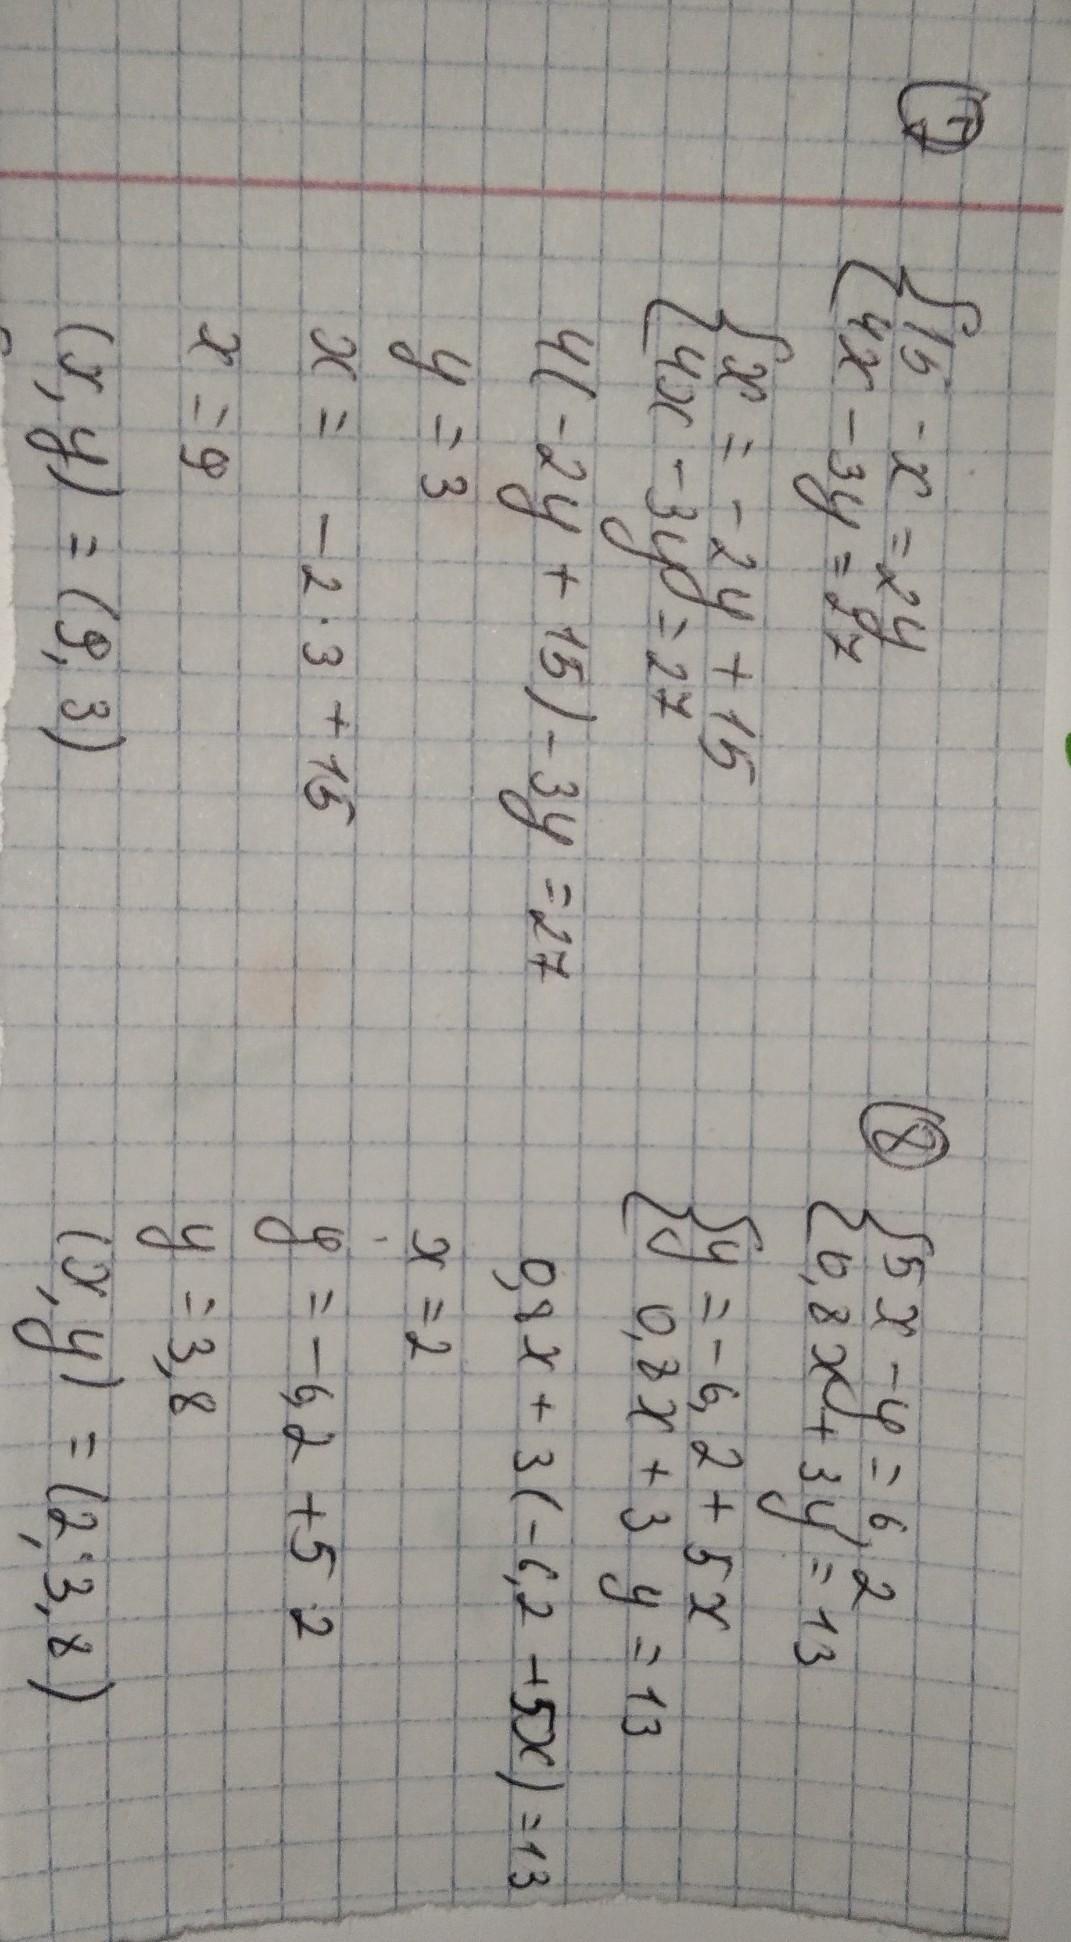 7
15 - x = 2y
4x - 3y = 27
x = -2y + 15
4x - 3y = 27
4(-2y + 15) - 3y = 27
y = 3
x = -2·3 + 15
x = 9
(x, y) = (9, 3)
8
5x - y = 6,2
0,8x + 3y = 13
y = -6,2 + 5x
0,8x + 3y = 13
0,8x + 3(-6,2 + 5x) = 13
x = 2
y = -6,2 + 5·2
y = 3,8
(x, y) = (2; 3,8)